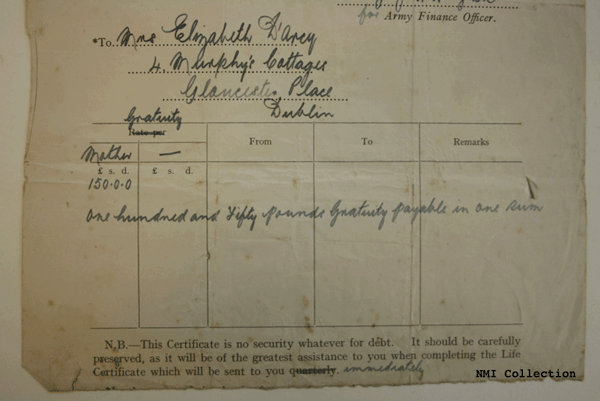 for Army Finance Officer.
*To Mrs Elizabeth D'Arcy
4. Murphy's Cottages
Gloucester Place
Dublin
Gratuity
Rate per
From To Remarks
Mother —
£ s. d. £ s. d.
150.0.0
One hundred and Fifty pounds Gratuity payable in one sum
N.B.—This Certificate is no security whatever for debt. It should be carefully
preserved, as it will be of the greatest assistance to you when completing the Life
Certificate which will be sent to you quarterly. immediately
NMI Collection